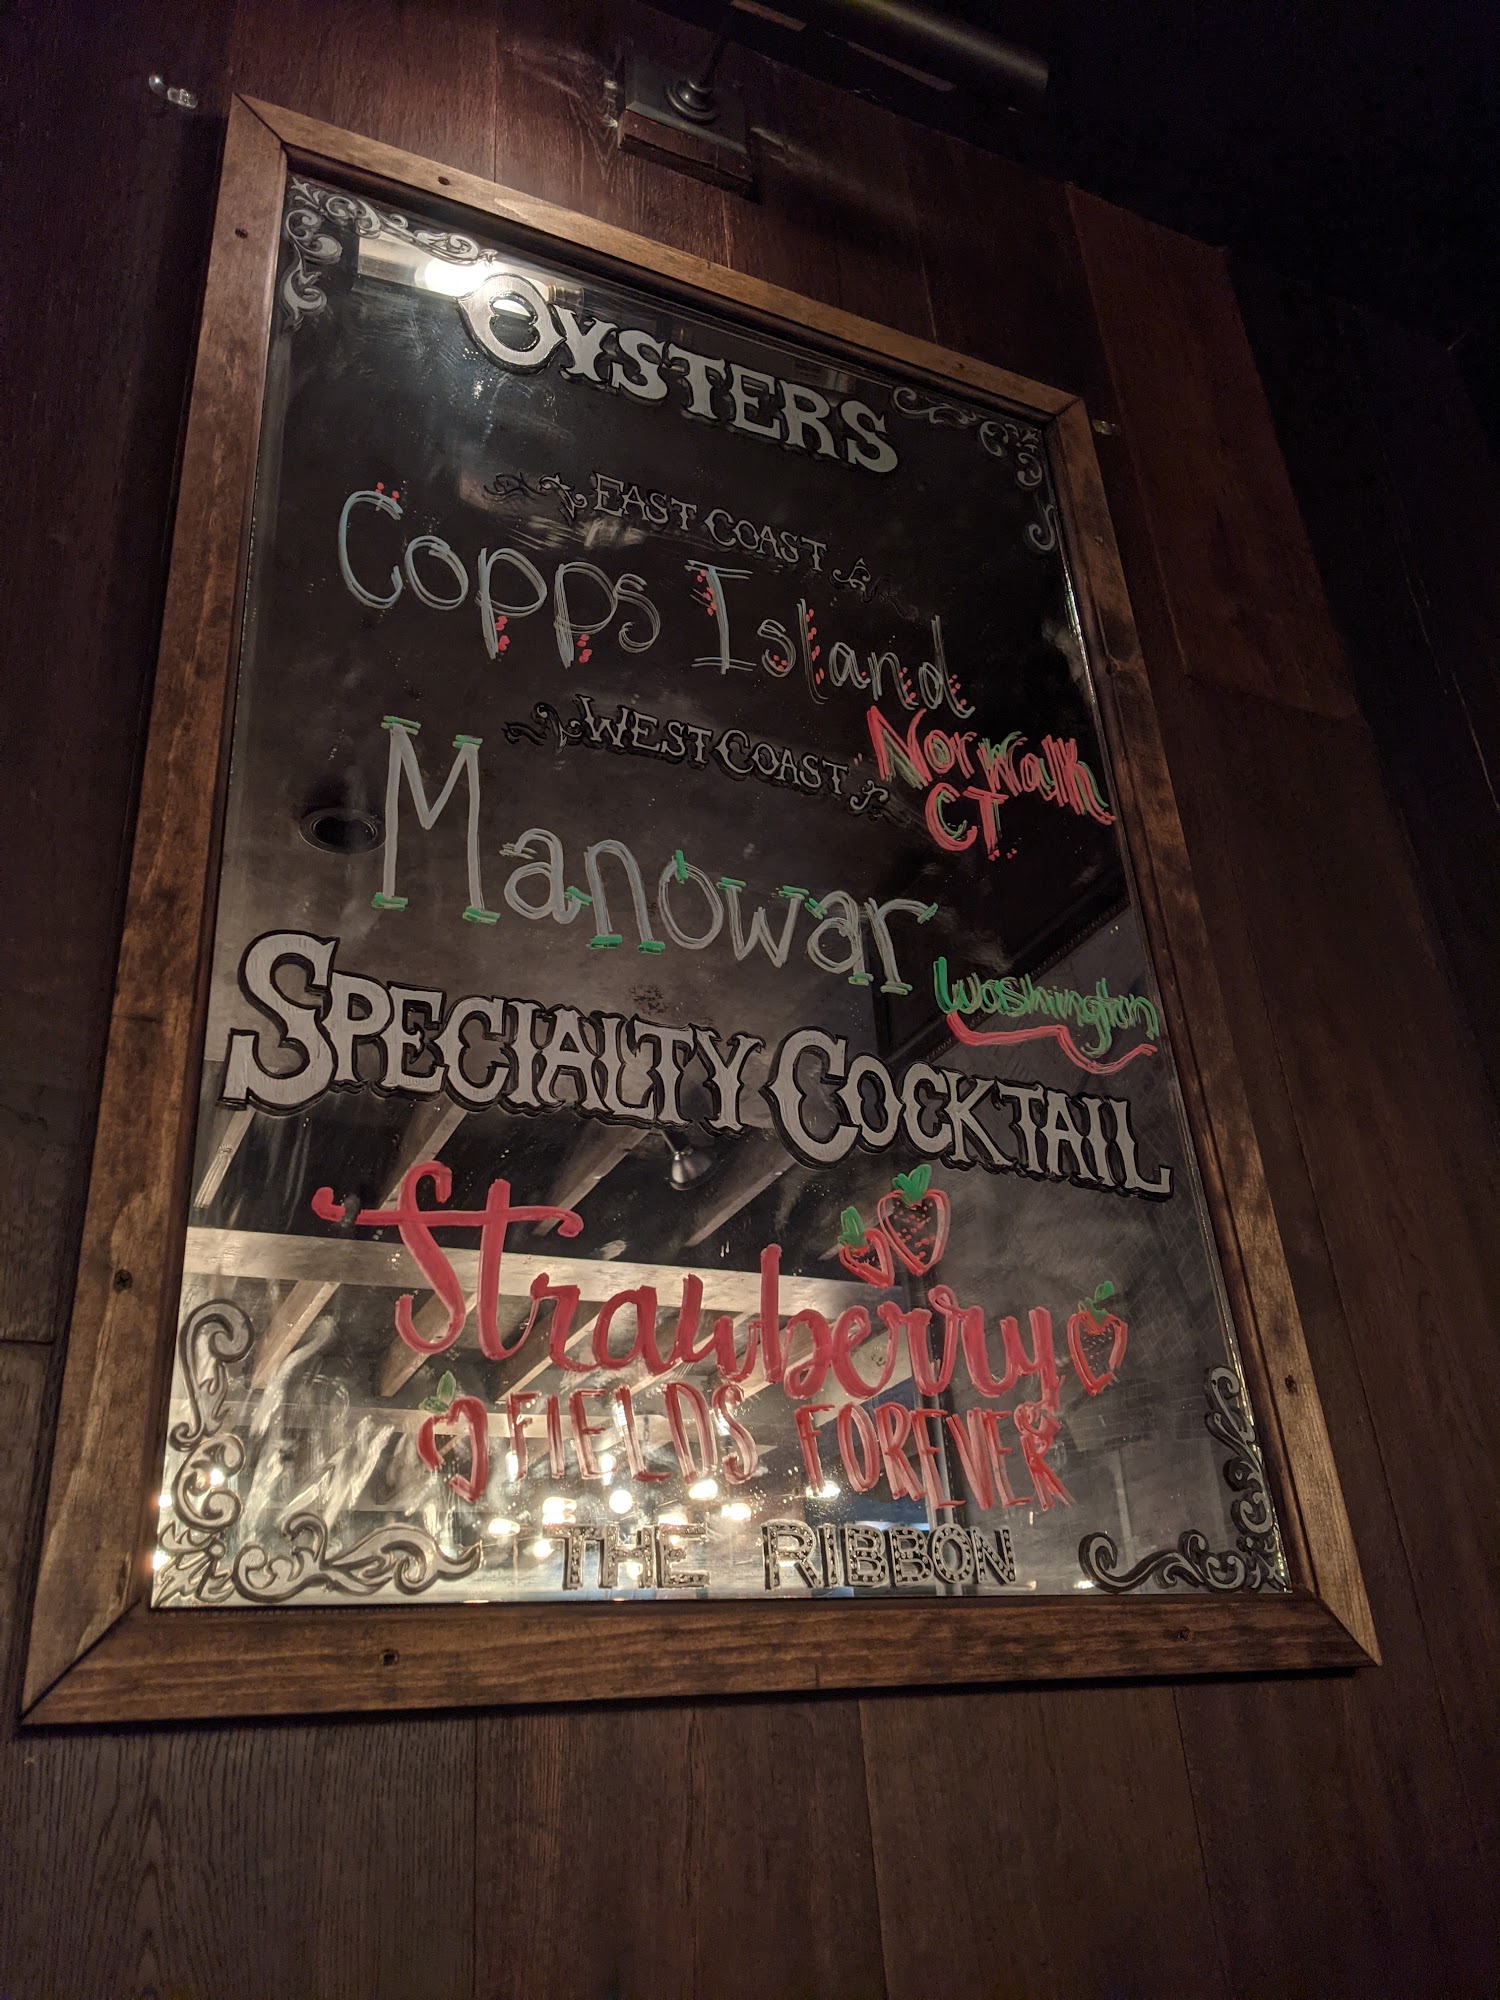 OYSTERS
EAST COAST
Copps Island
Norwalk
CT
WEST COAST
Manowar
Washington
SPECIALTY COCKTAIL
Strawberry
FIELDS FOREVER
THE RIBBON